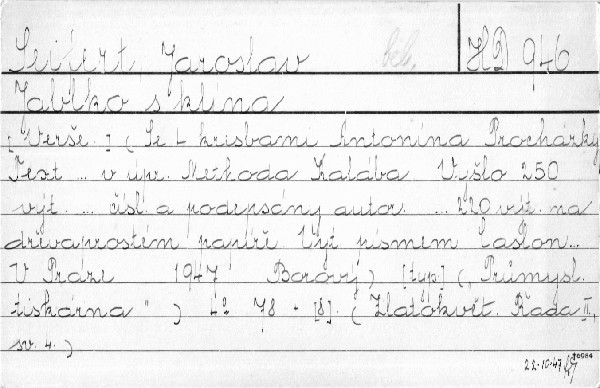 Seifert, Jaroslav beb. HD 946
Jablko s klína
[Verše.] (Se 4 kresbami Antonína Procházky
Text ... v úpr. Methoda Kalába Vyšlo 250
výt. ... čísl. a podepsány autor ... 220 výt. na
dřevaprostém papíře. Výt písmem Caslon...
V Praze 1947 Borový) [typ.] („Průmysl.
tiskárna") 4° 78 - [8]. (Zlatokvět. Řada II,
sv. 4.)
22-10-47